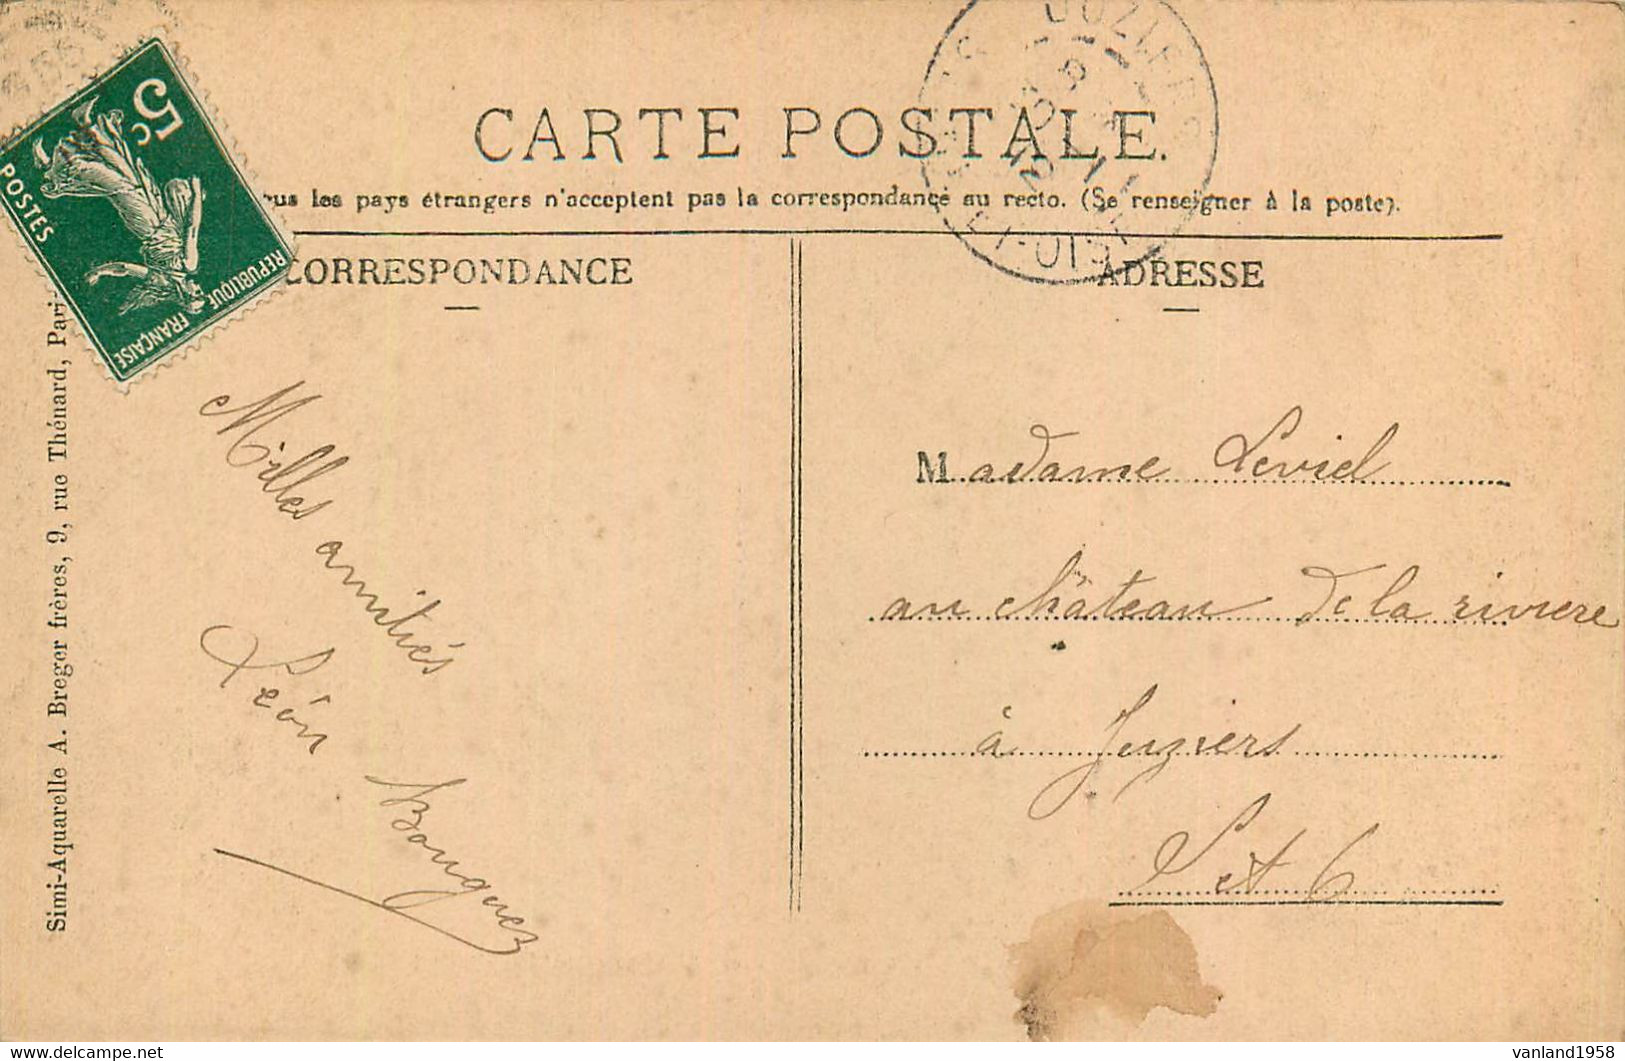 CARTE POSTALE.
us les pays étrangers n'acceptent pas la correspondance au recto. (Se renseigner à la poste).
5c
POSTES
REPUBLIQUE
FRANÇAISE
CORRESPONDANCE
Milles amitiés
Léon Bouquez
Simi-Aquarelle A. Breger frères, 9, rue Thénard, Pari
ADRESSE
Madame Leviel
au château de la riviere
à Juziers
S et O
vanland1958